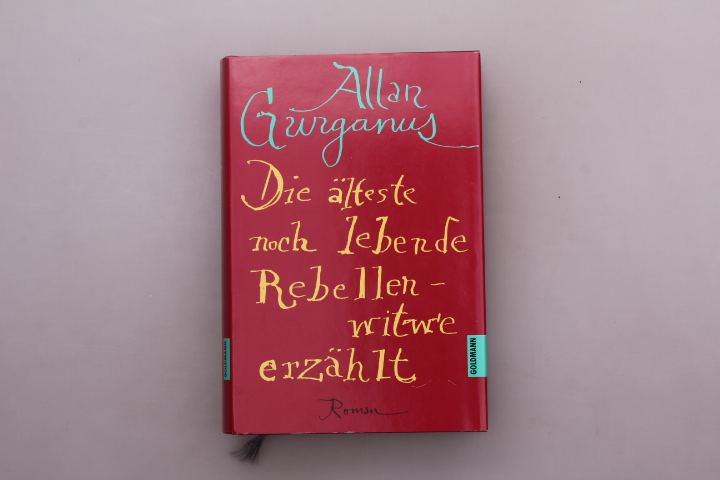 Allan
Gurganus
Die älteste
noch lebende
Rebellen-
witwe
erzählt
Roman
GOLDMANN